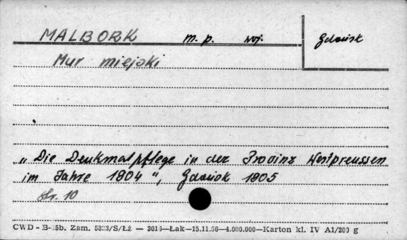 MALBORK m. p. woj. Gdańsk
Mur miejski
„Die Denkmalpflege in der Provinz Westpreussen
im Jahre 1904", Gdańsk 1905
Str. 10
CWD - B-35b. Zam. 5823/S/Łż — 2019—Łak—15.11.50—4.000.000—Karton kl. IV A1/200 g